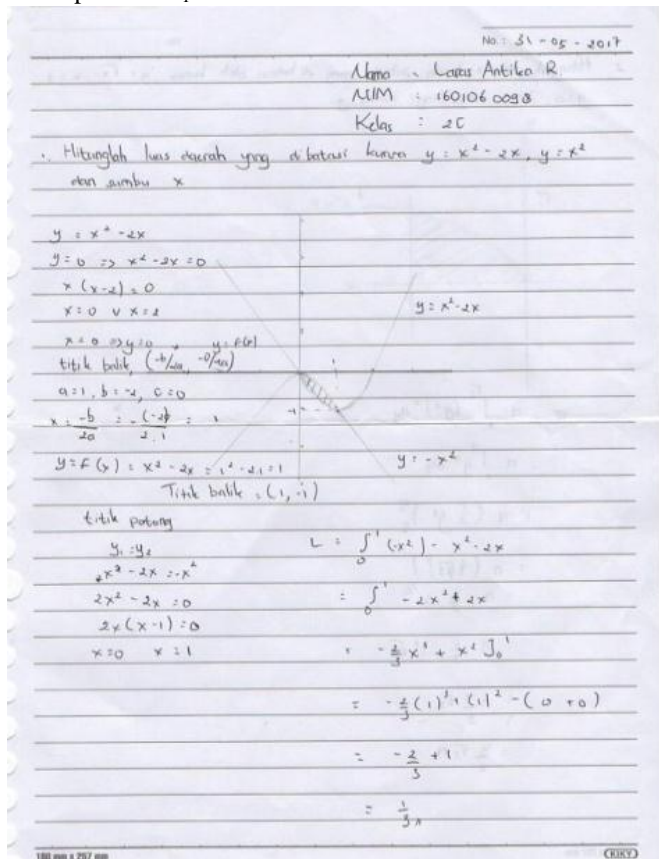 No : 31 - 05 - 2017
Nama : Laras Antika R
NIM : 1601060098
Kelas : 2C
Hitunglah luas daerah yng dibatasi kurva y = x² - 2x, y = x²
dan sumbu x
y = x² - 2x
y = 0 => x² - 2x = 0
x (x-2) = 0
x = 0 v x = 2
y = x² - 2x
x = 0 => y = 0, y = f(x)
titik balik, (-b/2a, -D/4a)
a = 1, b = -2, c = 0
x = -b/2a = -(-2)/2.1 = 1
y = f(x) = x² - 2x = 1² - 2.1 = 1
y = -x²
Titik balik = (1, -1)
titik potong
y₁ = y₂
x² - 2x = -x²
2x² - 2x = 0
2x (x-1) = 0
x = 0 x = 1
L = ∫₀¹ (-x²) - x² - 2x
= ∫₀¹ - 2x² + 2x
= -2/3 x³ + x² ]₀¹
= -2/3 (1)³ + (1)² - (0 + 0)
= -2/3 + 1
= 1/3
180 mm x 257 mm
KIKY